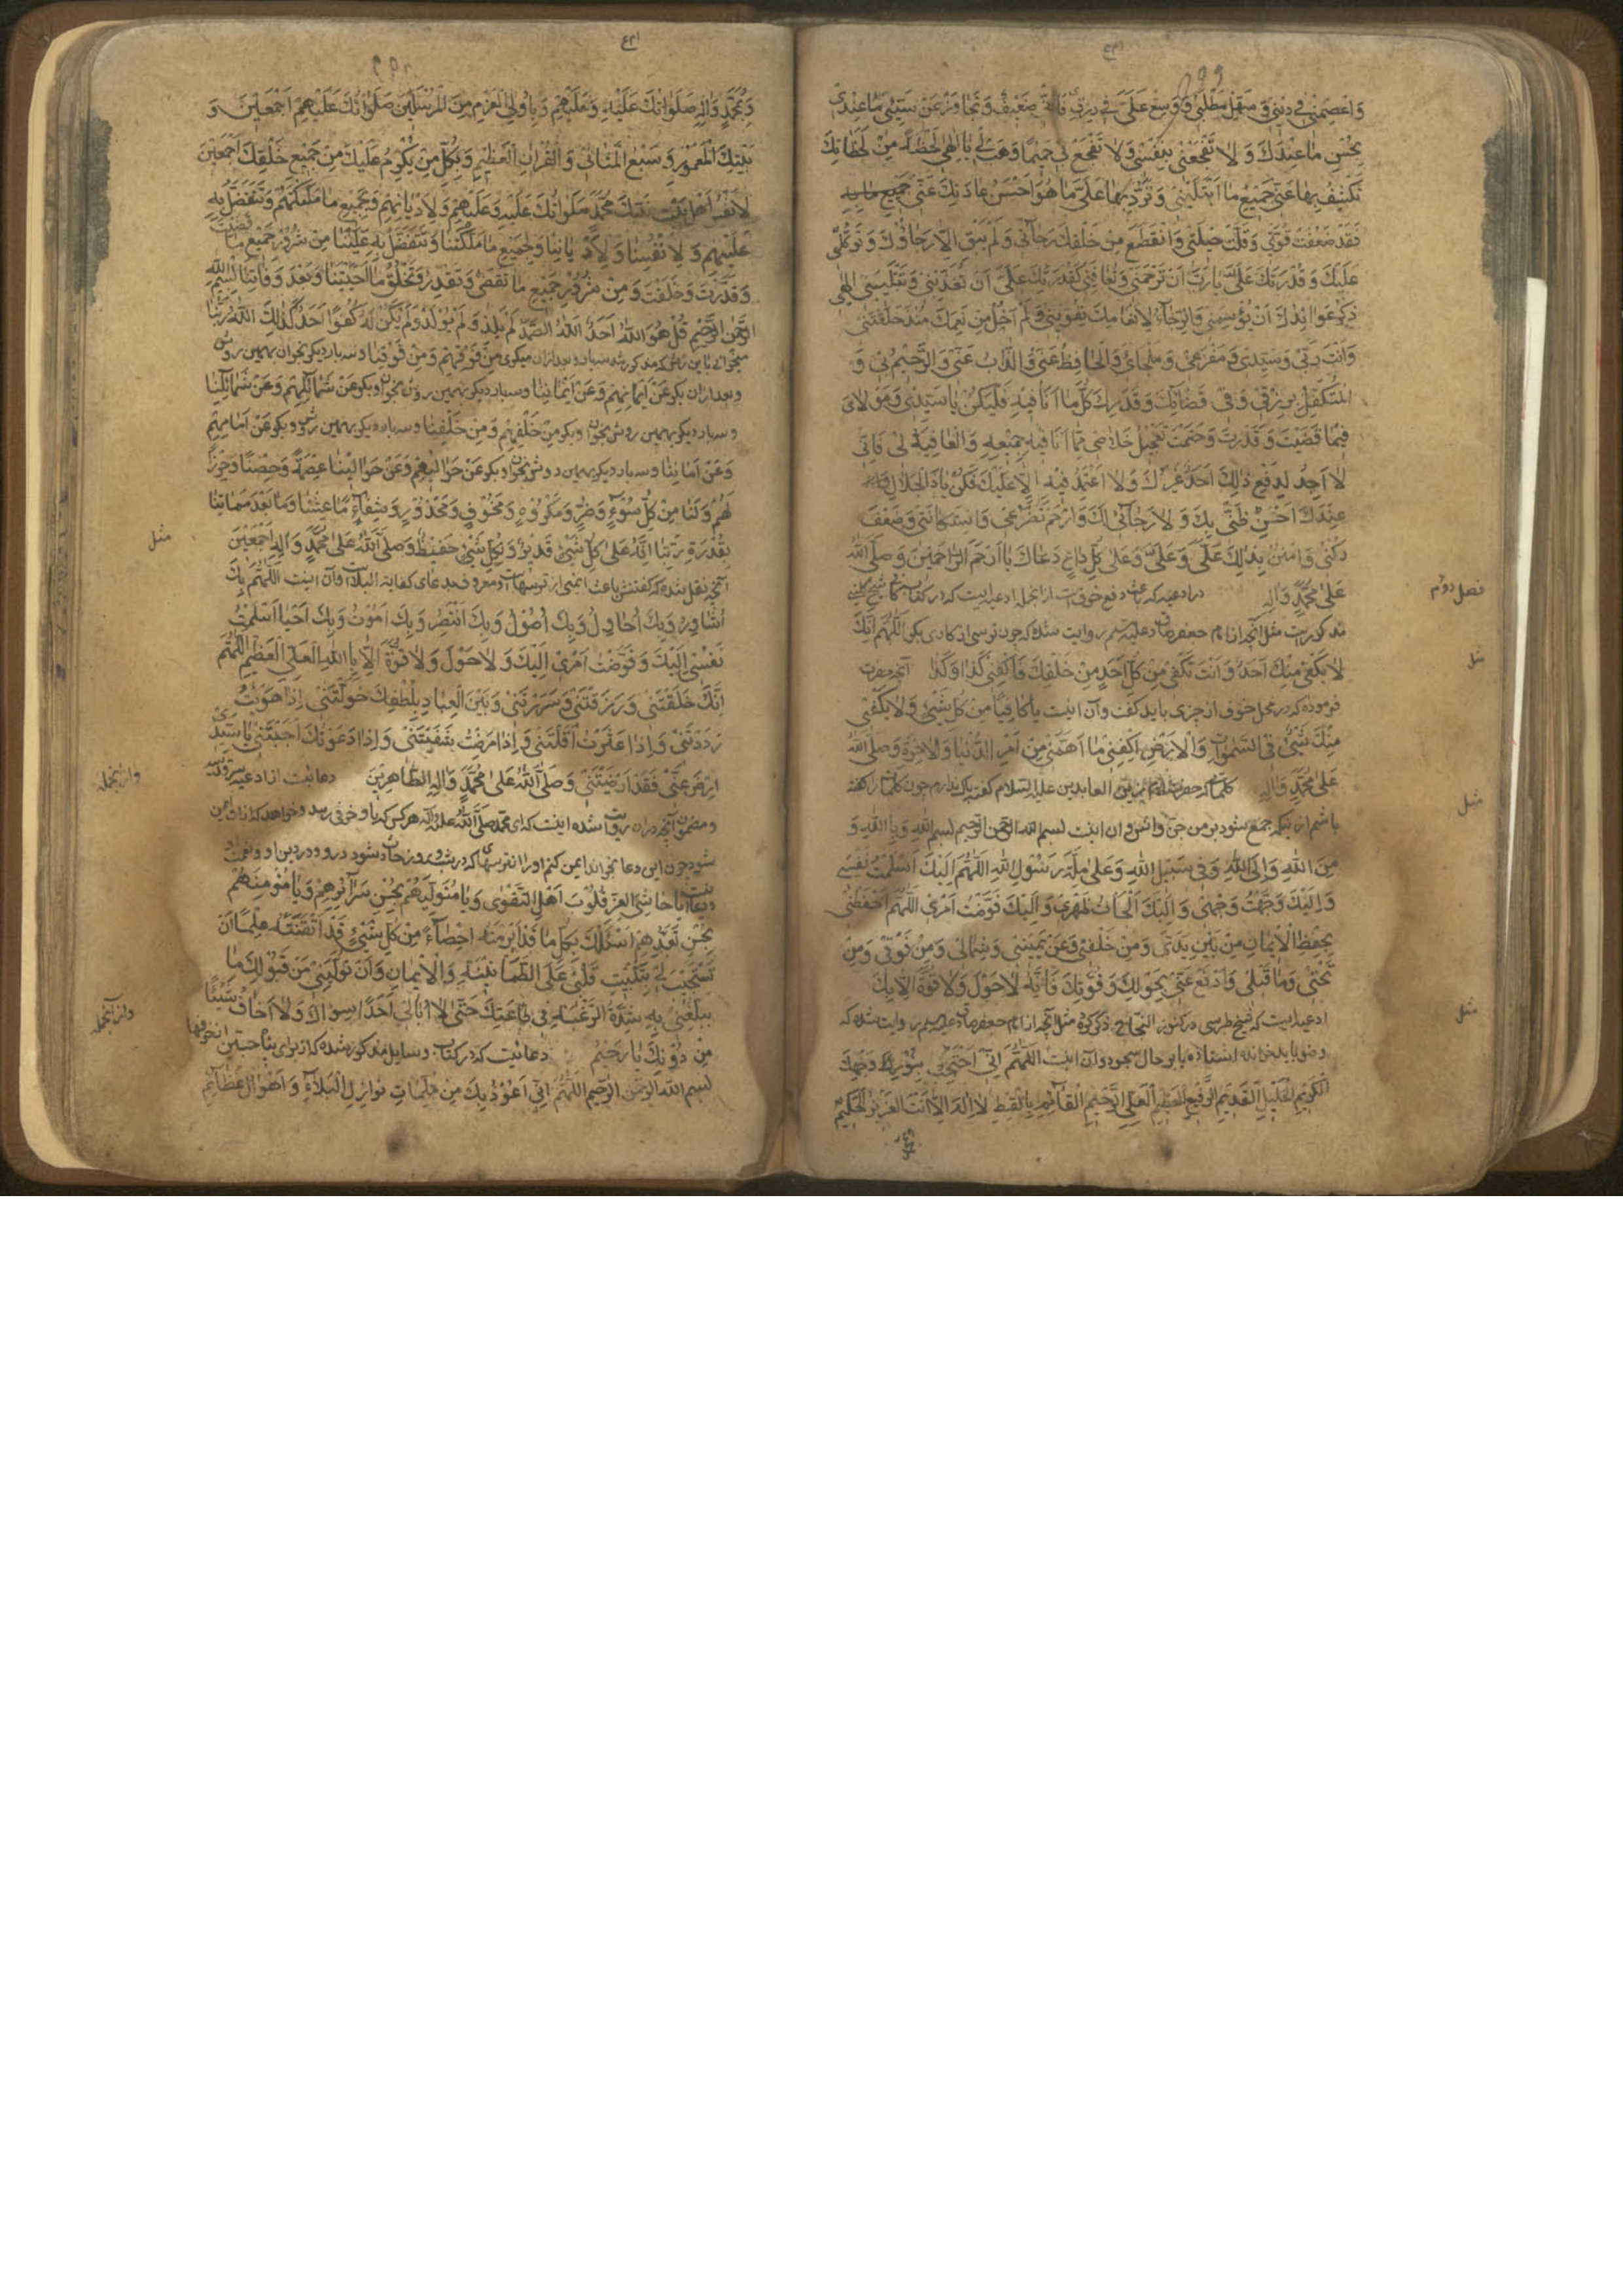 وَاعْصِمْنِي فِي دِينِي وَسَهِّلْ مَطْلَبِي وَوَسِّعْ عَلَيَّ فِي رِزْقِي فَإِنِّي ضَعِيفٌ وَتَجَاوَزْ عَنْ سَيِّئِ مَا عِنْدِي
بِحُسْنِ مَا عِنْدَكَ وَلَا تَفْجَعْنِي بِنَفْسِي وَلَا تَفْجَعْ لِي حَمِيمًا وَهَبْ لِي يَا إِلٰهِي لَحْظَةً مِنْ لَحَظَاتِكَ
تَكْشِفُ بِهَا عَنِّي جَمِيعَ مَا ابْتَلَيْتَنِي وَتَرُدُّ بِهَا عَلَيَّ مَا هُوَ أَحْسَنُ عَادَتِكَ عَنِّي جَمِيعَ مَا بِهِ
فَقَدْ ضَعُفَتْ قُوَّتِي وَقَلَّتْ حِيلَتِي وَانْقَطَعَ مِنْ خَلْقِكَ رَجَائِي وَلَمْ يَبْقَ إِلَّا رَجَاؤُكَ وَتَوَكُّلِي
عَلَيْكَ وَقُدْرَتُكَ عَلَيَّ يَا رَبِّ أَنْ تَرْحَمَنِي وَتُعَافِيَنِي كَقُدْرَتِكَ عَلَيَّ أَنْ تُعَذِّبَنِي وَتَبْتَلِيَنِي إِلٰهِي
وَأَنْتَ رَبِّي وَسَيِّدِي وَمَفْزَعِي وَمَلْجَائِي وَالْحَافِظُ عَنِّي وَالذَّابُّ عَنِّي وَالرَّحِيمُ بِي وَ
الْمُتَكَفِّلُ بِرِزْقِي وَفِي قَضَائِكَ وَقَدَرِكَ كُلُّ مَا أَنَا فِيهِ فَلْيَكُنْ يَا سَيِّدِي وَمَوْلَايَ
فِيمَا قَضَيْتَ وَقَدَّرْتَ وَحَتَمْتَ تَعْجِيلُ خَلَاصِي مِمَّا أَنَا فِيهِ جَمِيعِهِ وَالْعَافِيَةُ لِي فَإِنِّي
لَا أَجِدُ لِدَفْعِ ذٰلِكَ أَحَدًا غَيْرَكَ وَلَا أَعْتَمِدُ فِيهِ إِلَّا عَلَيْكَ فَكُنْ يَا ذَا الْجَلَالِ
عِنْدَكَ أَحْسَنَ ظَنِّي بِكَ وَلَا رَجَائِي لَكَ وَارْحَمْ تَضَرُّعِي وَاسْتِكَانَتِي وَضَعْفَ
رُكْنِي وَامْنُنْ بِذٰلِكَ عَلَيَّ وَعَلَى كُلِّ دَاعٍ دَعَاكَ يَا أَرْحَمَ الرَّاحِمِينَ وَصَلَّى اللهُ
عَلَى مُحَمَّدٍ وَآلِهِ
فصل دوم
در ادعیه که باعث دفع خوفست از آنجمله ادعیه ایست که در کتاب
مذکورست مثل آنچه از امام جعفر صادق علیه السلم روایت شده که چون ترسی از کاری بگو اَللّٰهُمَّ إِنَّكَ
مثل
لَا يَكْفِي مِنْكَ أَحَدٌ وَأَنْتَ تَكْفِي مِنْ كُلِّ أَحَدٍ مِنْ خَلْقِكَ فَاكْفِنِي كَذَا وَكَذَا آنچه حضرت
فرموده که در محل خوف از چیزی باید گفت وآن اینست يَا كَافِيًا مِنْ كُلِّ شَيْءٍ وَلَا يَكْفِي
مِنْكَ شَيْءٌ فِي السَّمٰوَاتِ وَالْأَرْضِ اكْفِنِي مَا أَهَمَّنِي مِنْ أَمْرِ الدُّنْيَا وَالْآخِرَةِ وَصَلَّى اللهُ
عَلَى مُحَمَّدٍ وَآلِهِ کلماتی که حضرت امام زین العابدین علیه السلام گفته باک ندارم چون کلمات را گفته
مثل
باشم از آنکه جمع شود بر من جن وانس وآن اینست بسم الله الرحمن الرحیم بسم الله وَبِاللهِ وَ
مِنَ اللهِ وَإِلَى اللهِ وَفِي سَبِيلِ اللهِ وَعَلَى مِلَّةِ رَسُولِ اللهِ اَللّٰهُمَّ إِلَيْكَ أَسْلَمْتُ نَفْسِي
وَإِلَيْكَ وَجَّهْتُ وَجْهِي وَإِلَيْكَ أَلْجَأْتُ ظَهْرِي وَإِلَيْكَ فَوَّضْتُ أَمْرِي اَللّٰهُمَّ احْفَظْنِي
بِحِفْظِ الْإِيمَانِ مِنْ بَيْنِ يَدَيَّ وَمِنْ خَلْفِي وَعَنْ يَمِينِي وَشِمَالِي وَمِنْ فَوْقِي وَمِنْ
تَحْتِي وَمَا قِبَلِي وَادْفَعْ عَنِّي بِحَوْلِكَ وَقُوَّتِكَ فَإِنَّهُ لَا حَوْلَ وَلَا قُوَّةَ إِلَّا بِكَ
ادعیه ایست که شیخ طبرسی در کنوز النجاح ذکر کرده مثل آنچه از امام جعفر صادق علیه السلم روایت شده که
مثل
اَللّٰهُمَّ إِنِّي بِنُورِ وَجْهِكَ
الْكَرِيمِ الْجَلِيلِ الْقَدِيمِ الرَّفِيعِ الْعَظِيمِ الْعَلِيِّ الرَّحِيمِ الْقَائِمِ بِالْقِسْطِ لَا إِلٰهَ إِلَّا أَنْتَ الْعَزِيزُ الْحَكِيمُ
وَبِمُحَمَّدٍ وَآلِهِ صَلَوَاتُكَ عَلَيْهِ وَعَلَيْهِمْ وَبِأُولِي الْعَزْمِ مِنَ الْمُرْسَلِينَ صَلَوَاتُكَ عَلَيْهِمْ أَجْمَعِينَ وَ
بَيْتِكَ الْمَعْمُورِ وَسَبْعِ الْمَثَانِي وَالْقُرْآنِ الْعَظِيمِ وَبِكُلِّ مَنْ يَكْرُمُ عَلَيْكَ مِنْ جَمِيعِ خَلْقِكَ أَجْمَعِينَ
لِأَنْفُسِ أَهْلِ بَيْتِ نَبِيِّكَ مُحَمَّدٍ صَلَوَاتُكَ عَلَيْهِ وَعَلَيْهِمْ وَلِأَدْيَانِهِمْ وَجَمِيعِ مَا مَلَّكْتَهُمْ وَتَتَفَضَّلُ بِهِ
عَلَيْهِمْ وَلِأَنْفُسِنَا وَلِأَدْيَانِنَا وَلِجَمِيعِ مَا مَلَّكْتَنَا وَتَتَفَضَّلُ بِهِ عَلَيْنَا مِنْ شُرُورِ جَمِيعِ مَا قَضَيْتَ
وَقَدَّرْتَ وَخَلَقْتَ وَمِنْ شُرُورِ جَمِيعِ مَا تَقْضِي وَتُقَدِّرُ وَتَخْلُقُ مَا أَحْيَيْتَنَا وَبَعْدَ وَفَاتِنَا بِسْمِ اللهِ
الرَّحْمٰنِ الرَّحِيمِ قُلْ هُوَ اللهُ أَحَدٌ اَللهُ الصَّمَدُ لَمْ يَلِدْ وَلَمْ يُولَدْ وَلَمْ يَكُنْ لَهُ كُفُوًا أَحَدٌ كَذٰلِكَ اللهُ رَبُّنَا
وبعد ازان بگو عَنْ أَيْمَانِهِمْ وَعَنْ أَيْمَانِنَا وسه بار دیگر بهمین روش بخوان وبگو عَنْ شَمَائِلِهِمْ وَعَنْ شَمَائِلِنَا
وسه بار دیگر بهمین روش بخوان وبگو مِنْ خَلْفِهِمْ وَمِنْ خَلْفِنَا وسه بار دیگر بهمین روش وبگو عَنْ أَمَامِهِمْ
وَعَنْ أَمَامِنَا وسه بار دیگر بهمین روش بخوان وبگو عَنْ حَوَالَيْهِمْ وَعَنْ حَوَالَيْنَا عِصْمَةً وَحِصْنًا وَحِرْزًا
لَهُمْ وَلَنَا مِنْ كُلِّ سُوءٍ وَضُرٍّ وَمَكْرُوهٍ وَمَخُوفٍ وَمَحْذُورٍ وَشِفَاءً مَا عِشْنَا وَمَا بَعْدَ مَمَاتِنَا
بِقُدْرَةِ رَبِّنَا إِنَّهُ عَلَى كُلِّ شَيْءٍ قَدِيرٌ وَلِكُلِّ شَيْءٍ حَفِيظٌ وَصَلَّى اللهُ عَلَى مُحَمَّدٍ وَآلِهِ أَجْمَعِينَ
مثل
آنچه نقل شده که گفتنش باعث ایمنی از ترسهاست ومعروف بدعای کفایة البلاست وآن اینست اَللّٰهُمَّ بِكَ
أُسَاوِرُ وَبِكَ أُحَاوِلُ وَبِكَ أَصُولُ وَبِكَ أَنْتَصِرُ وَبِكَ أَمُوتُ وَبِكَ أَحْيَا أَسْلَمْتُ
نَفْسِي إِلَيْكَ وَفَوَّضْتُ أَمْرِي إِلَيْكَ وَلَا حَوْلَ وَلَا قُوَّةَ إِلَّا بِاللهِ الْعَلِيِّ الْعَظِيمِ اَللّٰهُمَّ
إِنَّكَ خَلَقْتَنِي وَرَزَقْتَنِي وَسَرَرْتَنِي وَبَيْنَ الْعِبَادِ بِلُطْفِكَ خَوَّلْتَنِي إِذَا هَوَيْتُ
رَدَدْتَنِي وَإِذَا عَثَرْتُ أَقَلْتَنِي وَإِذَا مَرِضْتُ شَفَيْتَنِي وَإِذَا دَعَوْتُكَ أَجَبْتَنِي يَا سَيِّدِي
ارْضَ عَنِّي فَقَدْ أَرْضَيْتَنِي وَصَلَّى اللهُ عَلَى مُحَمَّدٍ وَآلِهِ الطَّاهِرِينَ دعائیست از ادعیه سر
وازانجمله
ومضمون آنچه دران روایت شده اینست که ای محمد صلی الله علیه وآله هر کس که باو خوفی رسد وخواهد که از او ایمن
شود چون این دعا بخواند ایمن کنم او را از ترسهایی که در شب وروز حادث شود
يَا حَاشِيَ الْعِزِّ قُلُوبَ أَهْلِ التَّقْوَى وَيَا مُتَوَلِّيَهُمْ بِحُسْنِ سَرَائِرِهِمْ وَيَا مُؤْمِنَهُمْ
بِحُسْنِ تَعَبُّدِهِمْ أَسْئَلُكَ بِكُلِّ مَا قَدْ أَبْرَمْتَهُ إِحْصَاءً مِنْ كُلِّ شَيْءٍ قَدْ أَتْقَنْتَهُ عِلْمًا أَنْ
تَسْتَجِيبَ لِي بِتَثْبِيتِ قَلْبِي عَلَى الطُّمَأْنِينَةِ وَالْإِيمَانِ وَأَنْ تُوَلِّيَنِي مِنْ قَبُولِكَ مَا
يُبَلِّغُنِي بِهِ شِدَّةَ الرَّغْبَةِ فِي طَاعَتِكَ حَتَّى لَا أُبَالِيَ أَحَدًا سِوَاكَ وَلَا أَخَافَ شَيْئًا
مِنْ دُونِكَ يَا رَحِيمُ دعائیست که در کتاب وسایل مذکور شده که از برای پناه جستن از خوفها
وازانجمله
بسم الله الرحمن الرحیم اَللّٰهُمَّ إِنِّي أَعُوذُ بِكَ مِنْ مُلِمَّاتِ نَوَازِلِ الْبَلَاءِ وَأَهْوَالِ عَظَائِمِ